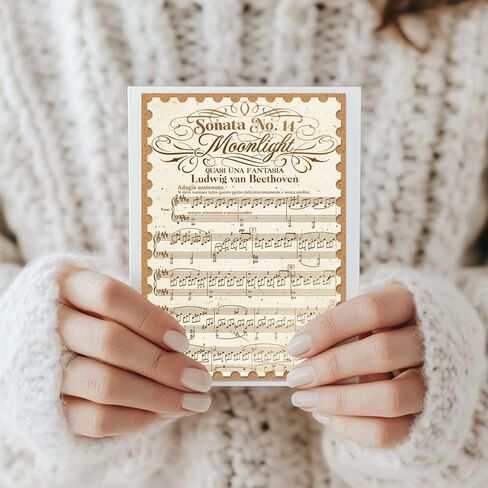 Sonata No. 14
Moonlight
QUASI UNA FANTASIA
Ludwig van Beethoven
Adagio sostenuto.
Si deve suonare tutto questo pezzo delicatissimamente e senza sordini.
sempre pianissimo e senza sordini